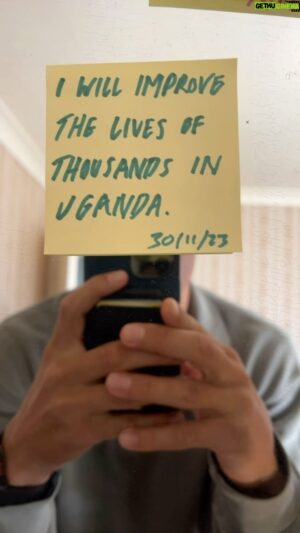 GETHUCINEMA
I WILL IMPROVE
THE LIVES OF
THOUSANDS IN
UGANDA.
30/11/23